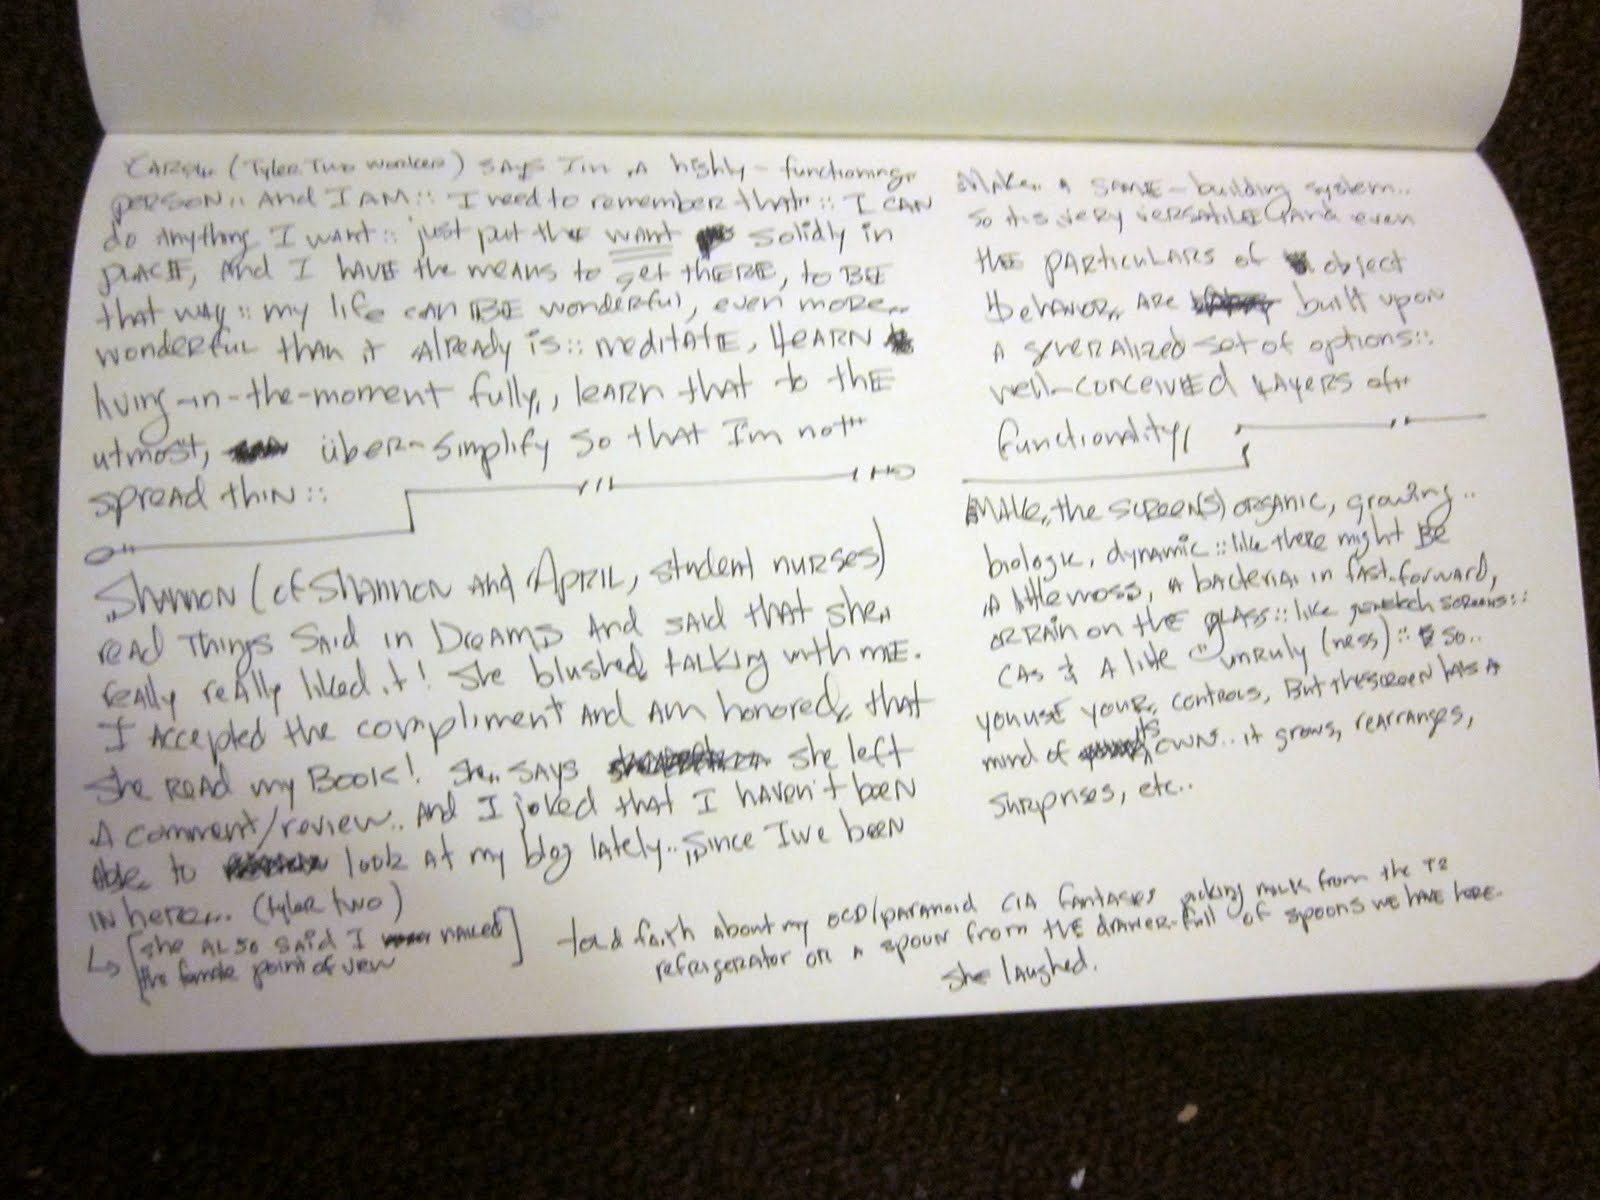 CAROL (Tyler Two worker) says I'm a highly-functioning,,
person,, And I AM:: I need to remember that":: I CAN
do Anything I want:: just put the want solidly in
place, And I have the means to get there, to BE
that way:: my life can BE wonderful, even more,,
wonderful than it already is:: meditate, learn
living-in-the-moment fully,, learn that to the
utmost, über-simplify so that I'm not"
spread thin::
Shannon (of Shannon And April, student nurses)
read Things Said in Dreams And said that she,,
really really liked it! She blushed talking with me.
I Accepted the compliment And Am honored,, that
she read my Book! She,, says she left
A comment/review.. And I joked that I haven't been
Able to look at my blog lately..,, since I've been
in here... (tyler two)
[she also said I nailed]
the female point of view
Make,, a same-building system..
so it is very versatile, and even
the particulars of object
behavior,, are built upon
a generalized set of options::
well-conceived layers of"
functionality,
Make,, the screen(s) organic, growing..
biologic, dynamic:: like there might be
a little moss, a bacteria in fast-forward,
or rain on the glass:: like screens::
CAs & A little "unruly (ness):: so..
you use your,, controls, But the screen has a
mind of its own.. it grows, rearranges,
surprises, etc..
told faith about my OCD/paranoid CIA fantasies milk from the T2
refrigerator on a spoon from the drawer-full of spoons we have here.
She laughed.